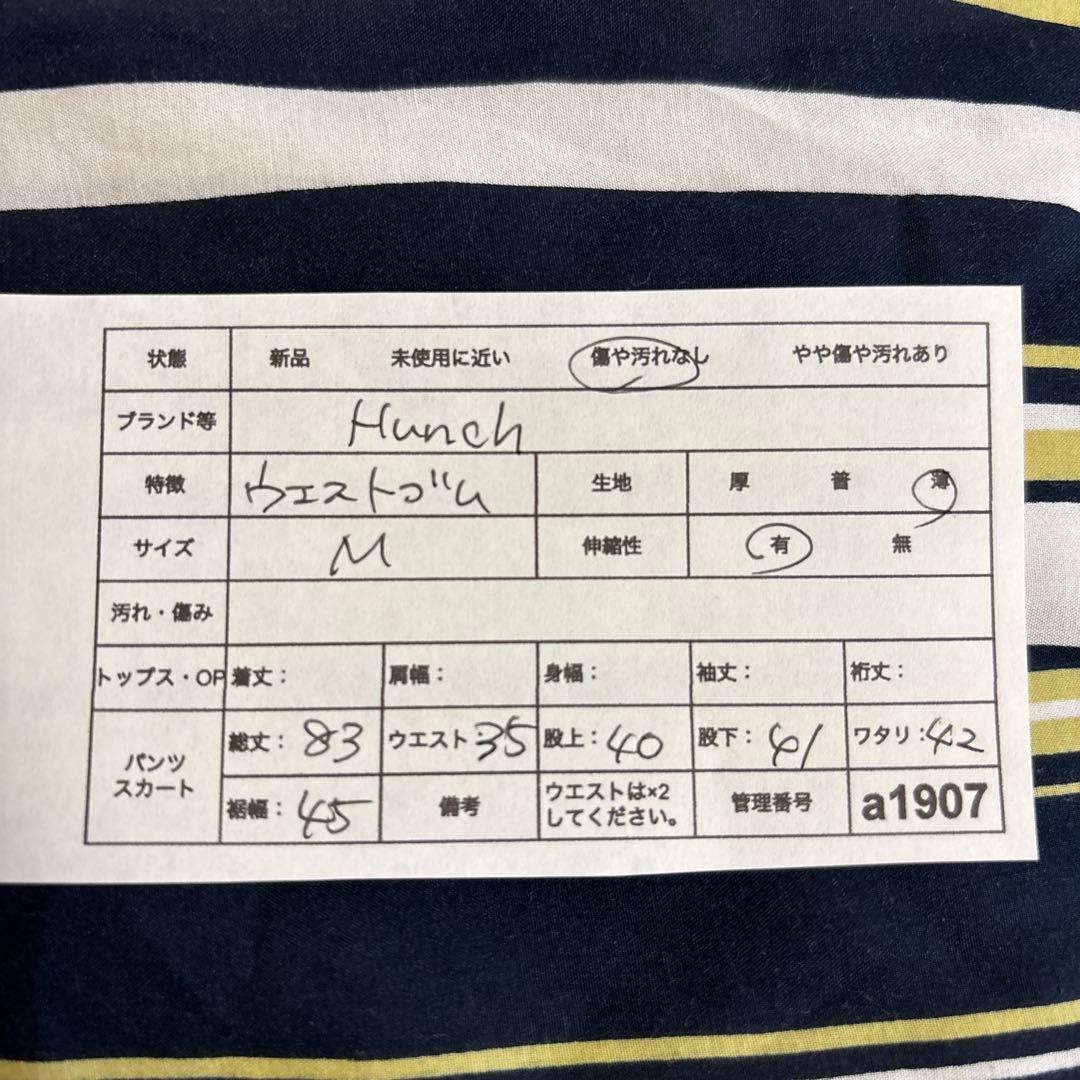 状態 新品 未使用に近い 傷や汚れなし やや傷や汚れあり
ブランド等 Hunch
特徴 ウエストゴム 生地 厚 普 薄
サイズ M 伸縮性 有 無
汚れ・傷み
トップス・OP 着丈: 肩幅: 身幅: 袖丈: 裄丈:
パンツ スカート 総丈: 83 ウエスト 35 股上: 40 股下: 41 ワタリ: 42
裾幅: 45 備考 ウエストは×2 してください。 管理番号 a1907